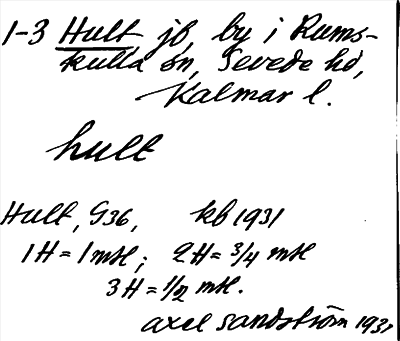 1-3 Hult, jb, by i Rums-
kulla sn, Sevede hd,
Kalmar l.
hult
Hult, G36, kb 1931
1H = 1 mtl; 2H = 3/4 mtl
3H = 1/2 mtl.
Axel Sandström 1931